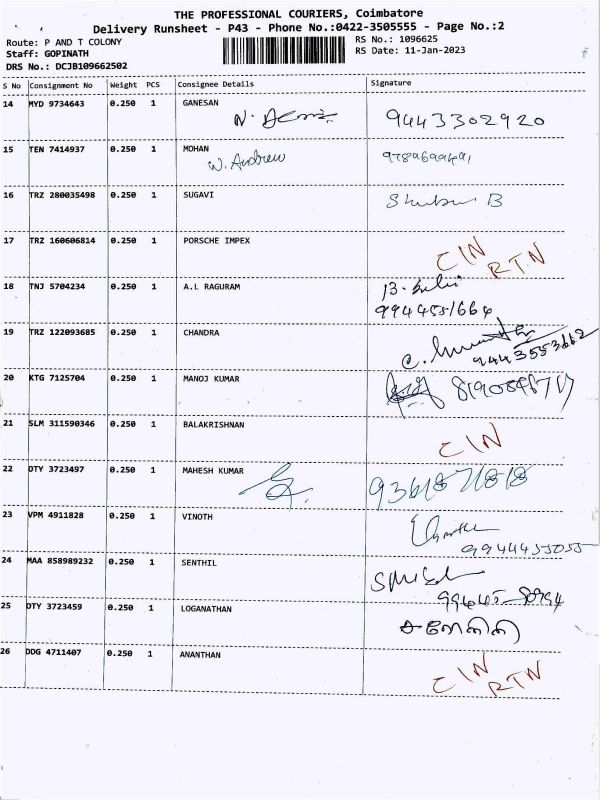 THE PROFESSIONAL COURIERS, Coimbatore
Delivery Runsheet - P43 - Phone No.:0422-3505555 - Page No.:2
Route: P AND T COLONY
RS No.: 1096625
Staff: GOPINATH
RS Date: 11-Jan-2023
DRS No.: DCJB109662502
S No Consignment No Weight PCS Consignee Details Signature
14 MYD 9734643 0.250 1 GANESAN
9443302920
15 TEN 7414937 0.250 1 MOHAN
W. Andrew
16 TRZ 280035498 0.250 1 SUGAVI
17 TRZ 160606814 0.250 1 PORSCHE IMPEX
CIN
RTN
18 TNJ 5704234 0.250 1 A.L RAGURAM
9944551664
19 TRZ 122093685 0.250 1 CHANDRA
9443553662
20 KTG 7125704 0.250 1 MANOJ KUMAR
21 SLM 311590346 0.250 1 BALAKRISHNAN
CIN
22 OTY 3723497 0.250 1 MAHESH KUMAR
9361871818
23 VPM 4911828 0.250 1 VINOTH
9944455055
24 MAA 858989232 0.250 1 SENTHIL
25 OTY 3723459 0.250 1 LOGANATHAN
26 DDG 4711407 0.250 1 ANANTHAN
CIN
RTN